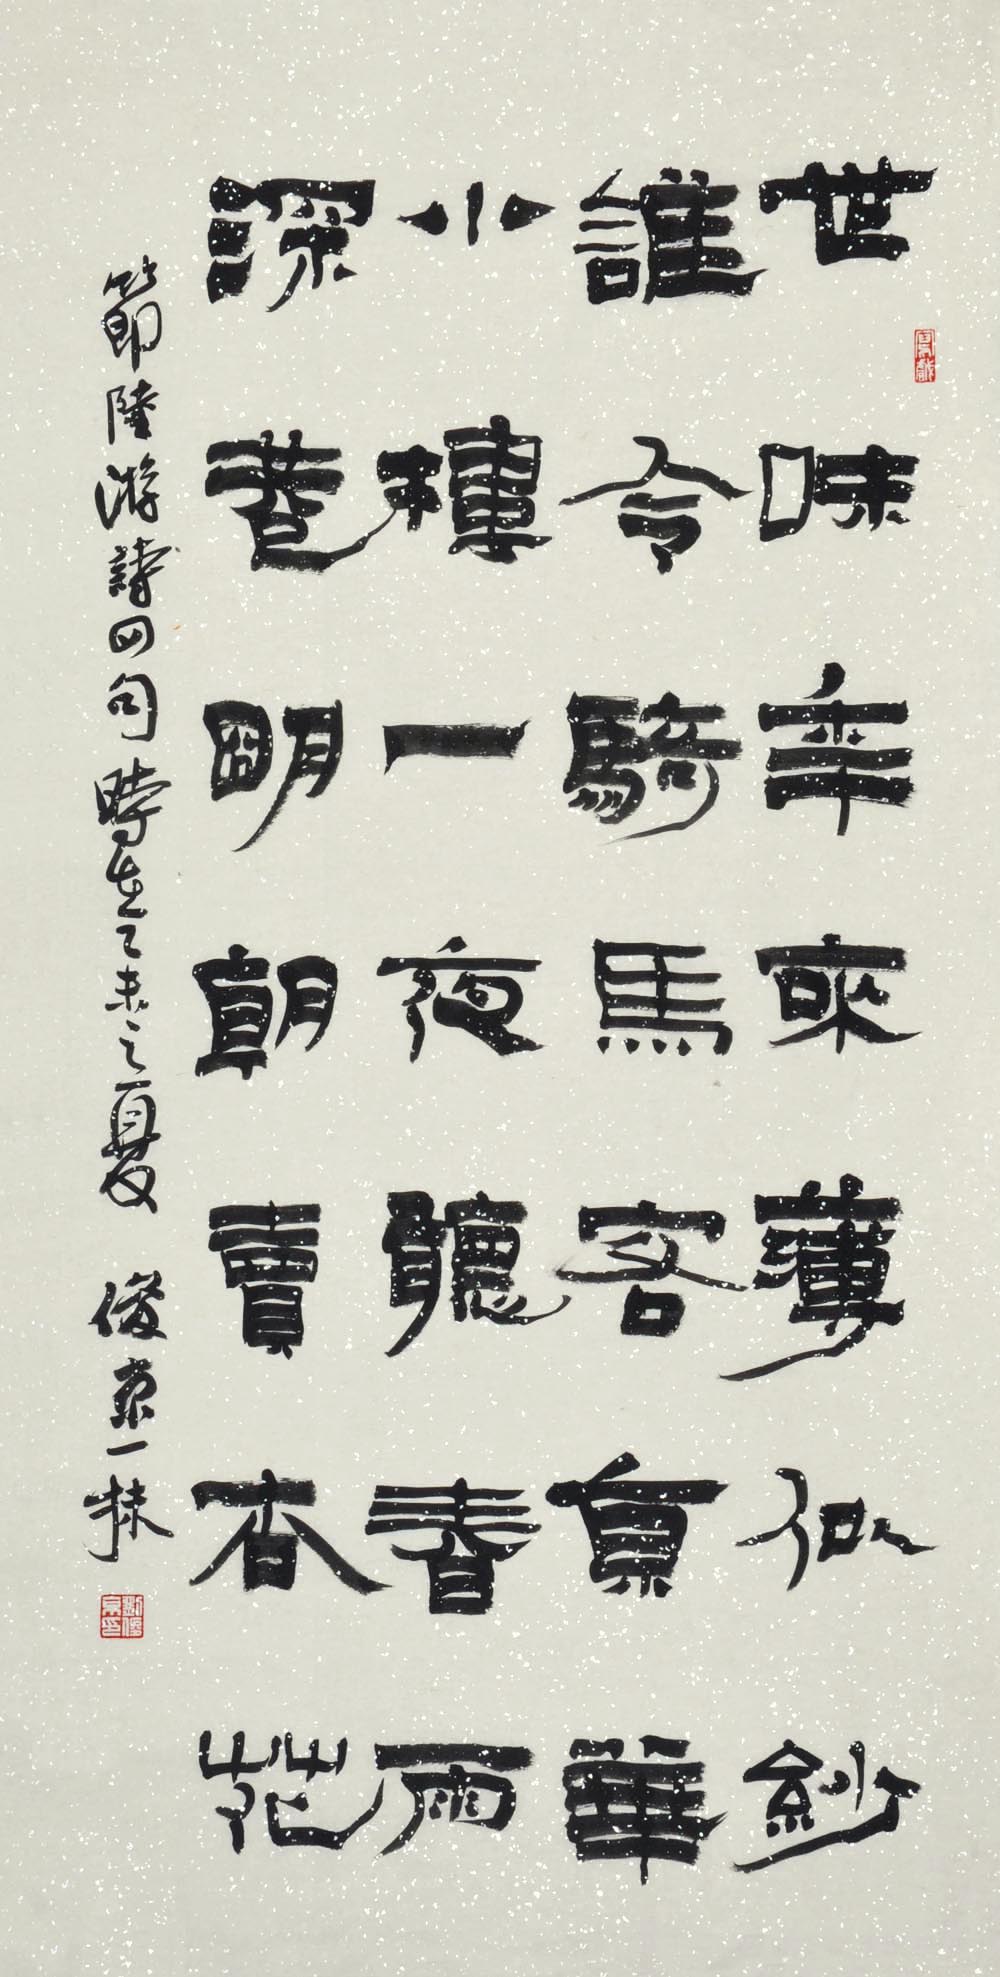 世味年來薄似紗
誰令騎馬客京華
小樓一夜聽春雨
深巷明朝賣杏花
節陸游詩四句時在乙未之夏 俊京一抹
劉俊京印